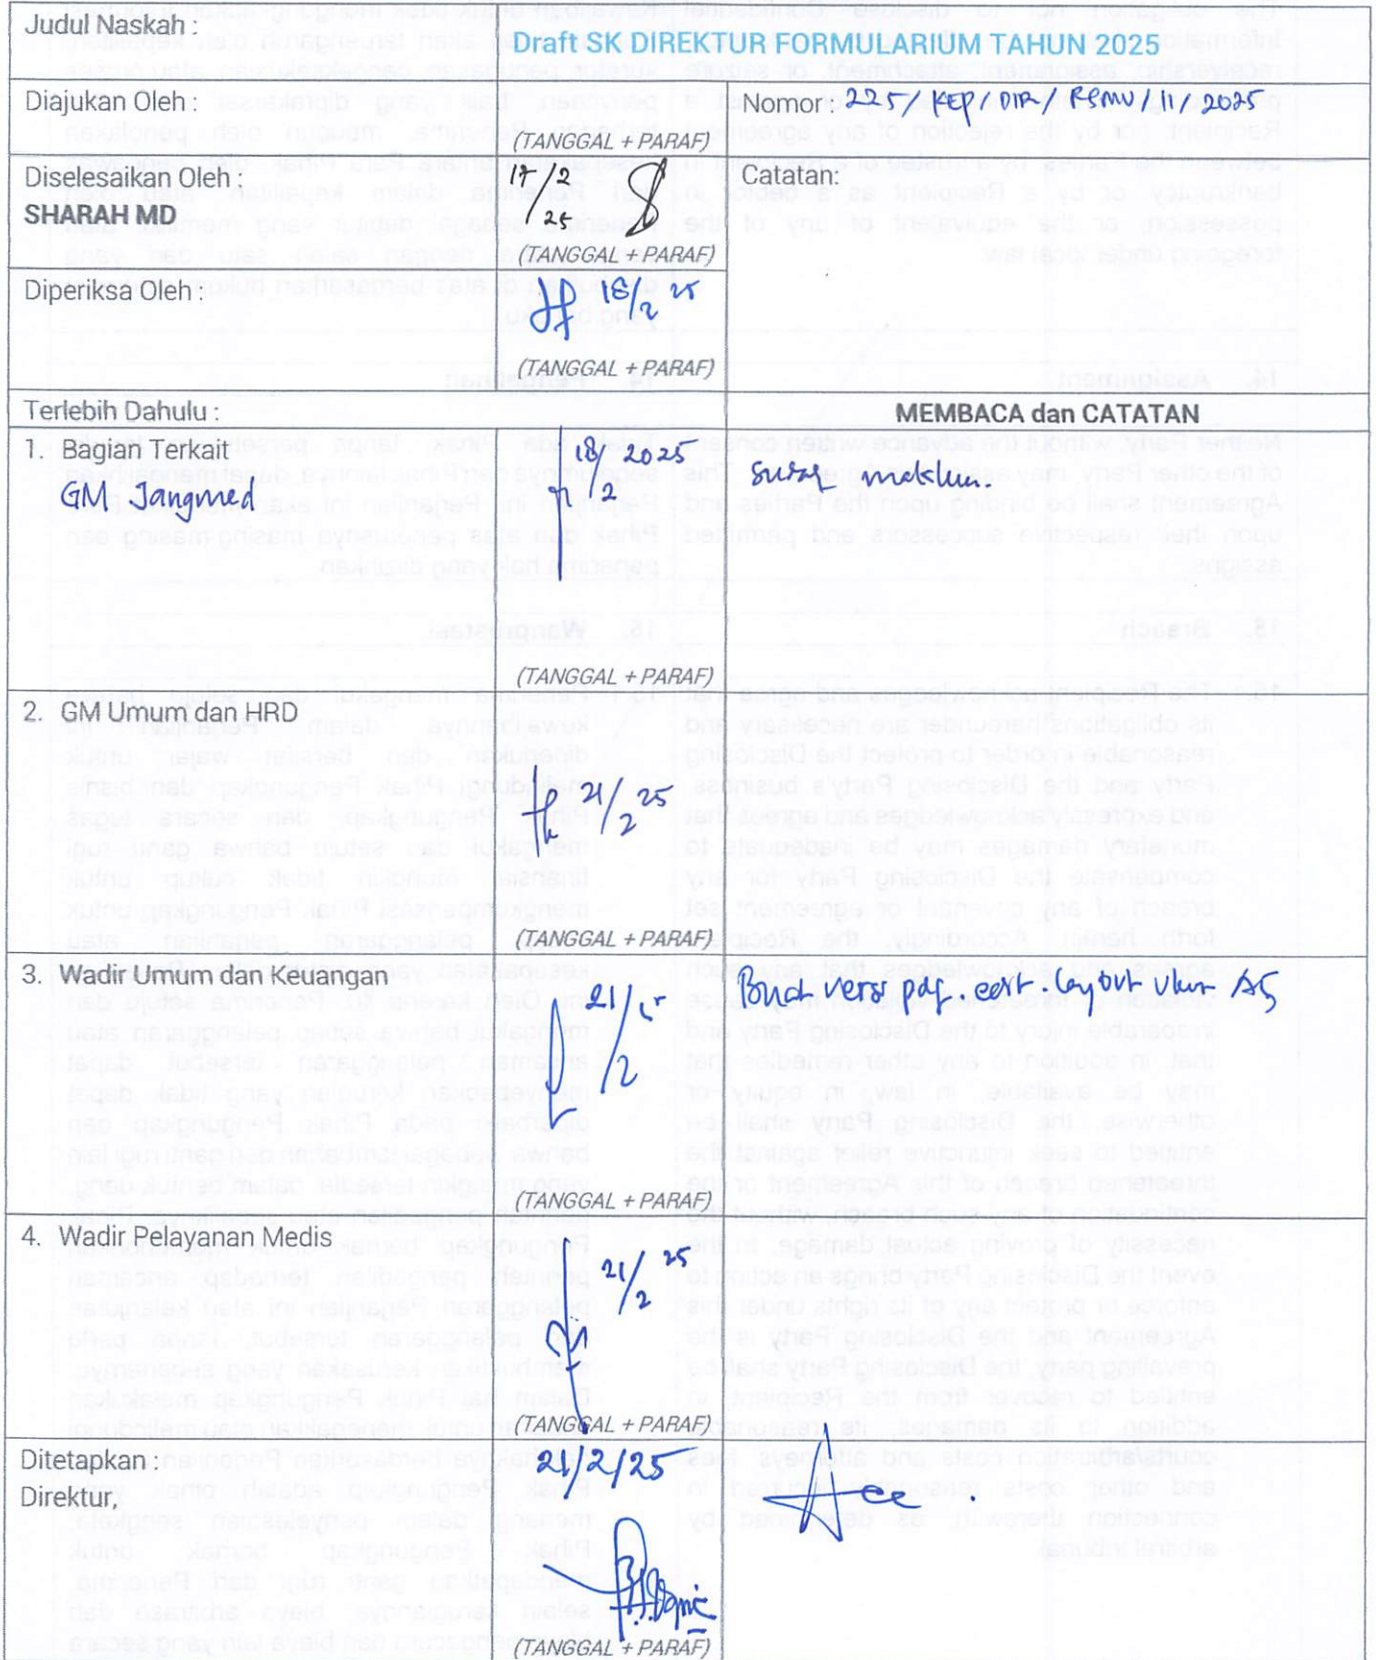 Judul Naskah :
Draft SK DIREKTUR FORMULARIUM TAHUN 2025
Diajukan Oleh :
(TANGGAL + PARAF)
Nomor : 225/KEP/DIR/RSMU/11/2025
Diselesaikan Oleh :
SHARAH MD
17/2/25
(TANGGAL + PARAF)
Catatan:
Diperiksa Oleh :
18/2 25
(TANGGAL + PARAF)
Terlebih Dahulu :
MEMBACA dan CATATAN
1. Bagian Terkait
GM Jangmed
18/2 2025
(TANGGAL + PARAF)
2. GM Umum dan HRD
21/2 25
(TANGGAL + PARAF)
3. Wadir Umum dan Keuangan
21/2
(TANGGAL + PARAF)
layout A5
4. Wadir Pelayanan Medis
21/2 25
(TANGGAL + PARAF)
Ditetapkan :
Direktur,
21/2/25
(TANGGAL + PARAF)
Acc.